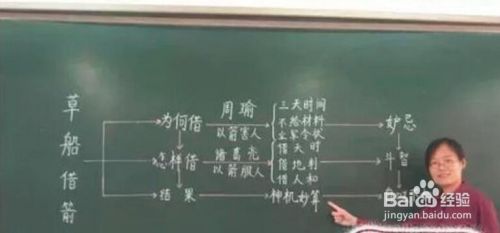 草船借箭
为何借
周瑜
以箭害人
三天时间
不给材料
立军令状
妒忌
怎样借
诸葛亮
以箭服人
借天时
借地利
借人和
斗智
结果
神机妙算
Baidu经验
jingyan.baidu.com